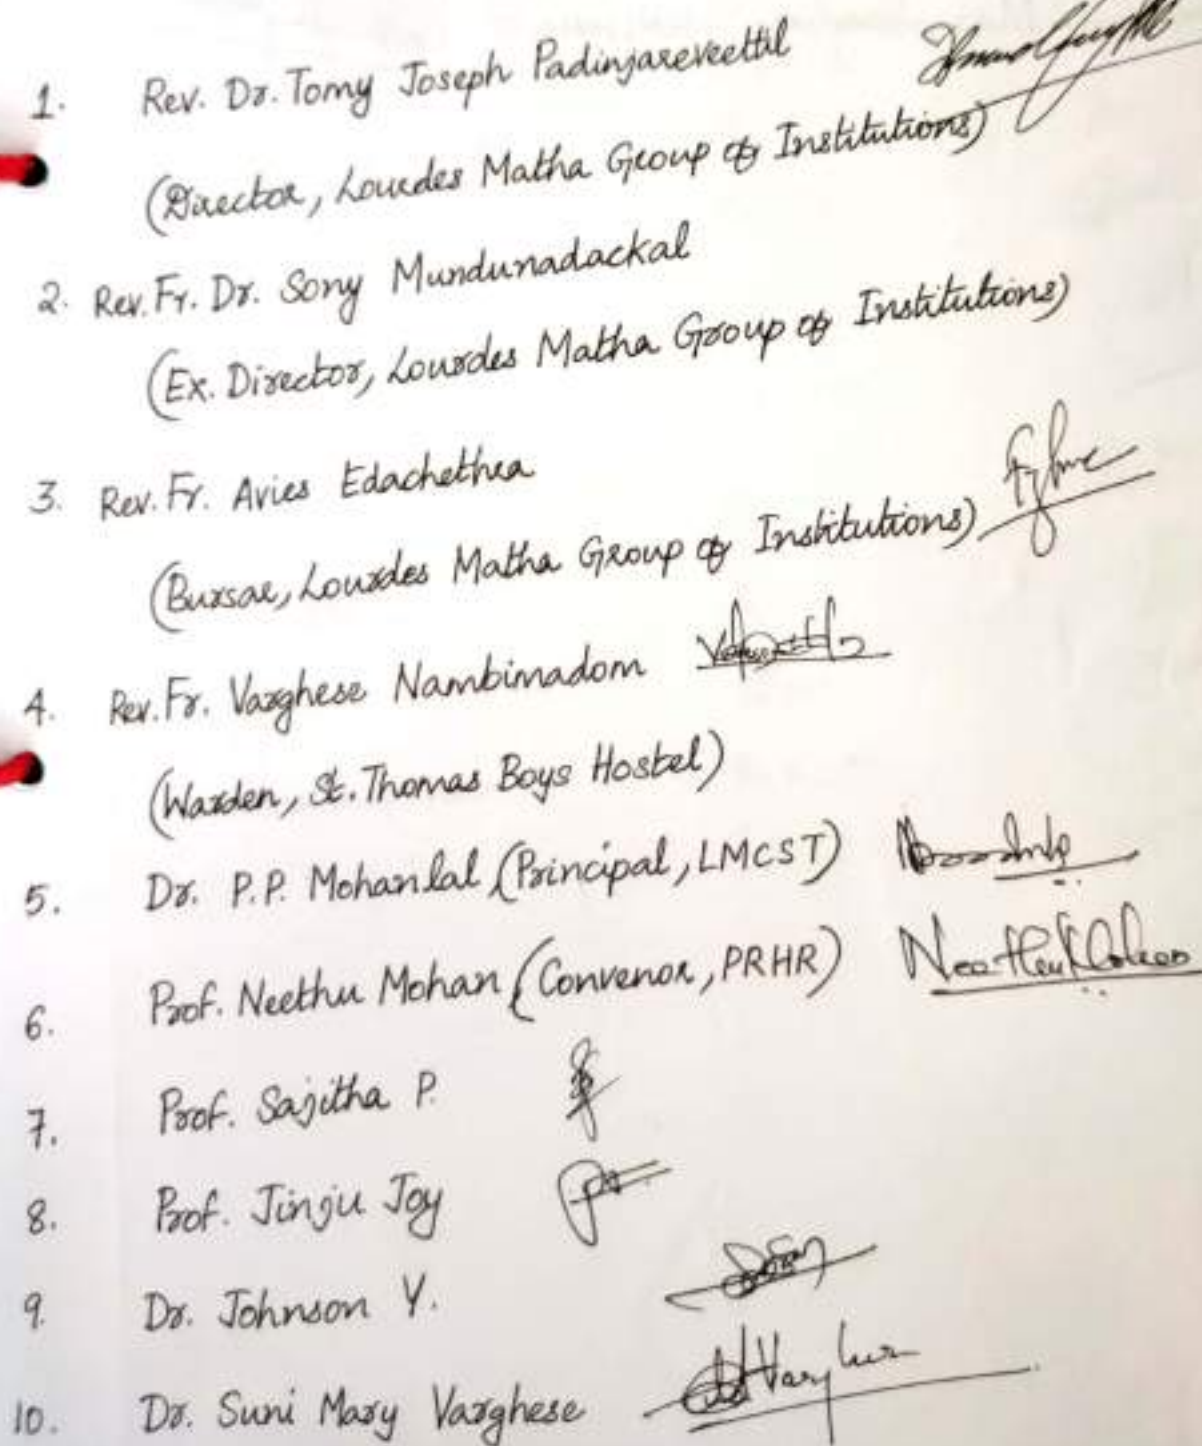 1. Rev. Dr. Tomy Joseph Padinjareveettil
(Director, Lourdes Matha Group of Institutions)
2. Rev. Fr. Dr. Sony Mundunadackal
(Ex. Director, Lourdes Matha Group of Institutions)
3. Rev. Fr. Avies Edachethra
(Bursar, Lourdes Matha Group of Institutions)
4. Rev. Fr. Varghese Nambimadom
(Warden, St. Thomas Boys Hostel)
5. Dr. P.P. Mohanlal (Principal, LMCST)
6. Prof. Neethu Mohan (Convenor, PRHR) Neethu Mohan
7. Prof. Sajitha P.
8. Prof. Jinju Joy
9. Dr. Johnson Y.
10. Dr. Suni Mary Varghese